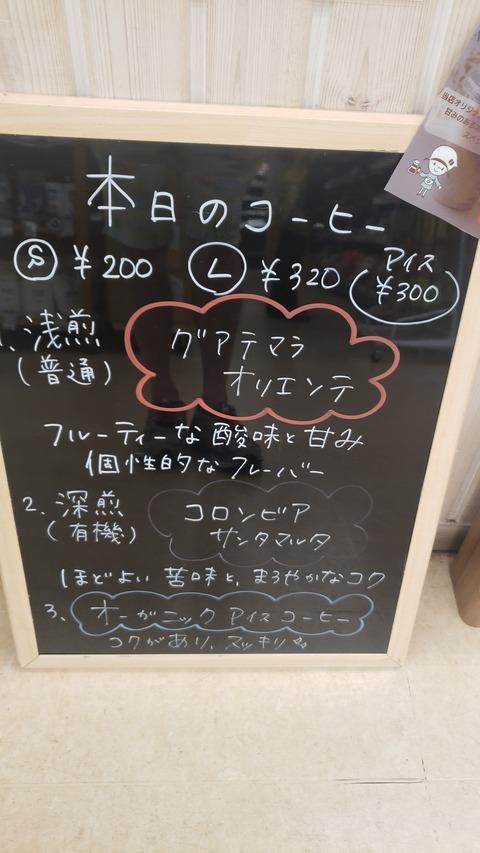 本日のコーヒー
Ⓢ ¥200 Ⓛ ¥320 アイス ¥300
1. 浅煎
(普通)
グアテマラ
オリエンテ
フルーティーな酸味と甘み
個性的なフレーバー
2. 深煎
(有機)
コロンビア
サンタマルタ
ほどよい苦味と、まろやかなコク
3. オーガニック アイスコーヒー
コクがあり、スッキリ
当店オリジ
甘みのある